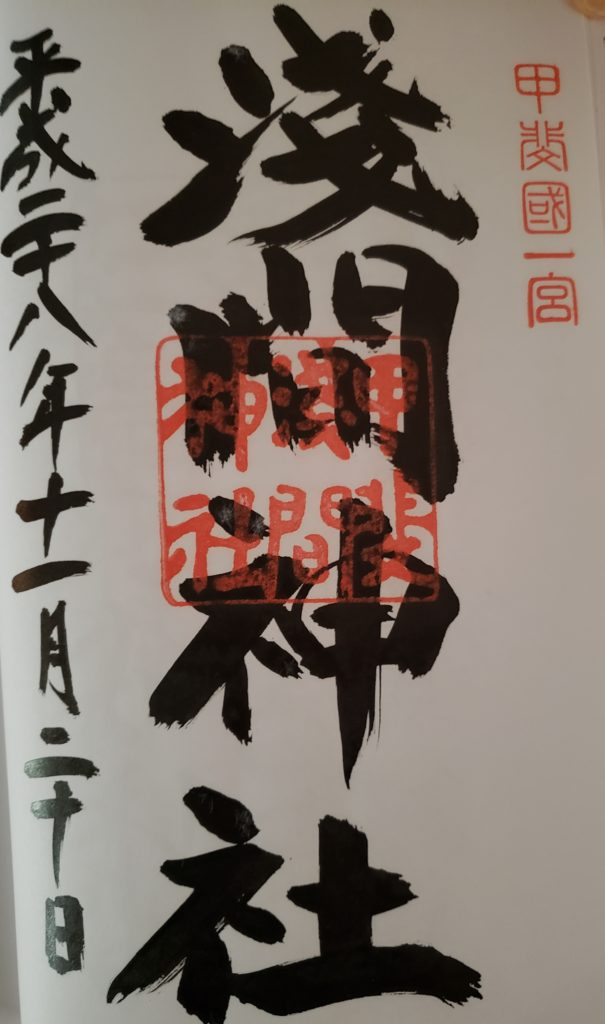 甲斐國一宮
淺間神社
平成二十八年十一月二十日
間
神社